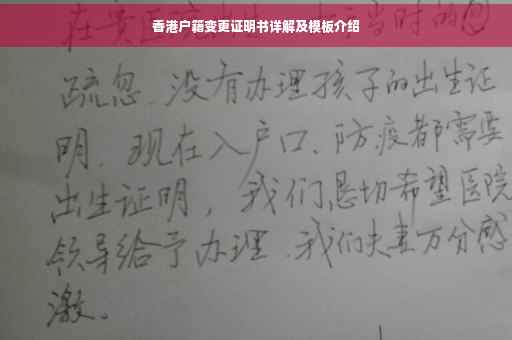 香港户籍变更证明书详解及模板介绍
在
当时的
疏忽、没有办理孩子的出生证
明、现在入户口、防疫都需要
出生证明，我们恳切希望医院
领导给予办理、我们夫妻万分感
激。